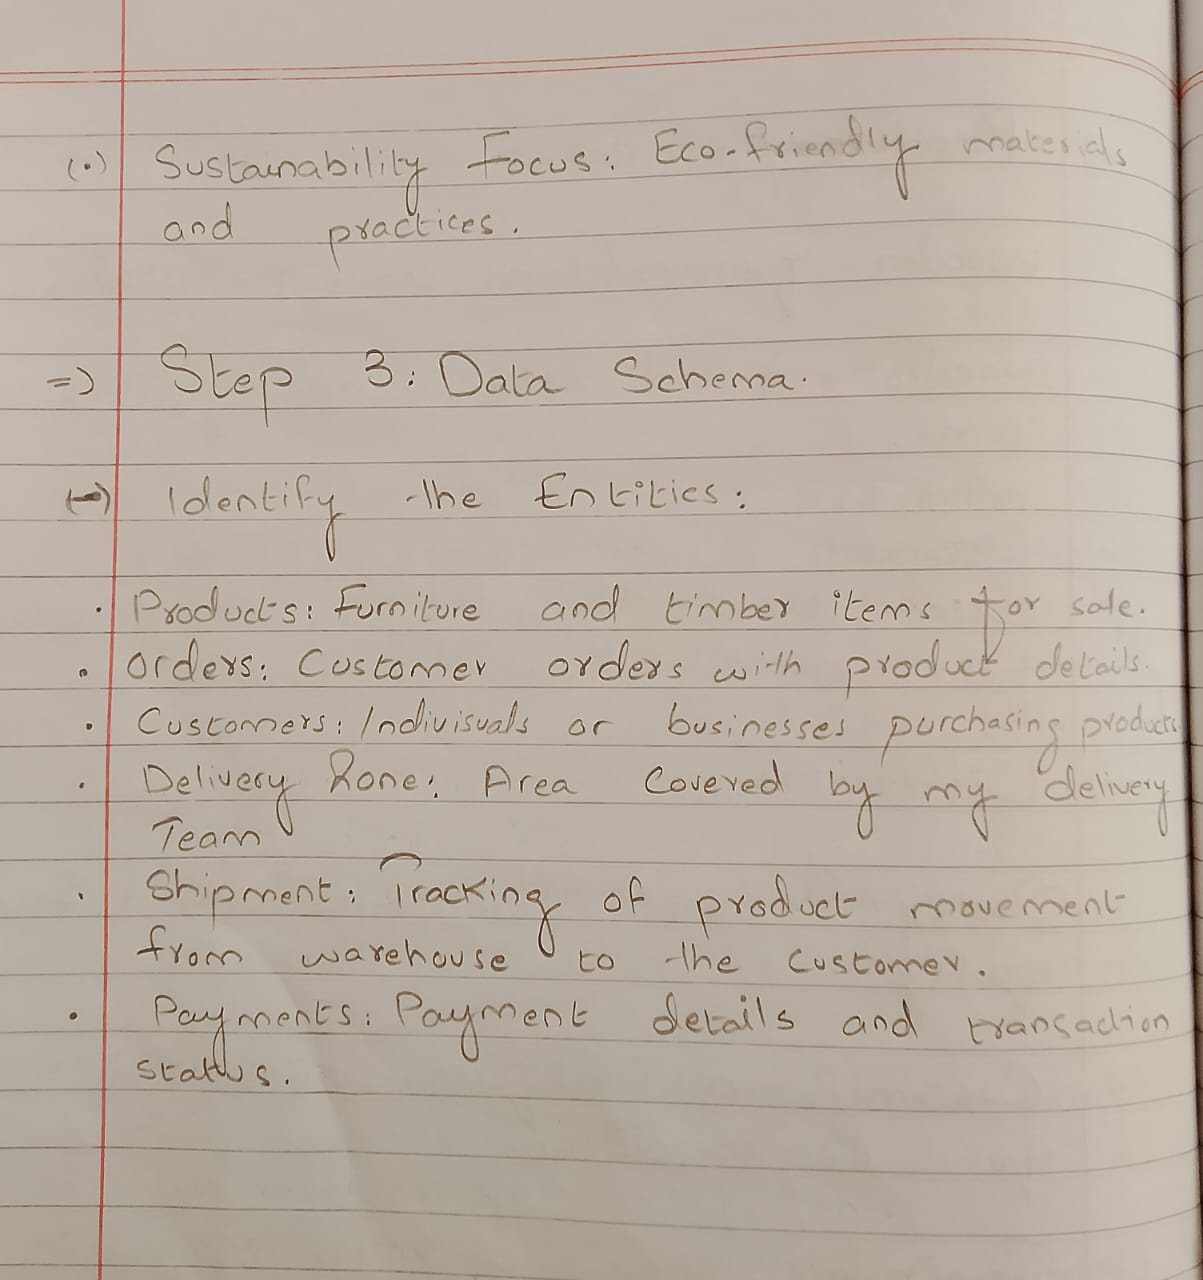 (•) Sustainability Focus: Eco-friendly materials
and practices.
=> Step 3: Data Schema.
(→) Identify the Entities:
• Products: Furniture and timber items for sale.
• Orders: Customer orders with product details.
• Customers: Indivisuals or businesses purchasing products
• Delivery Zone: Area Covered by my delivery
Team
• Shipment: Tracking of product movement
from warehouse to the customer.
• Payments: Payment details and transaction
status.